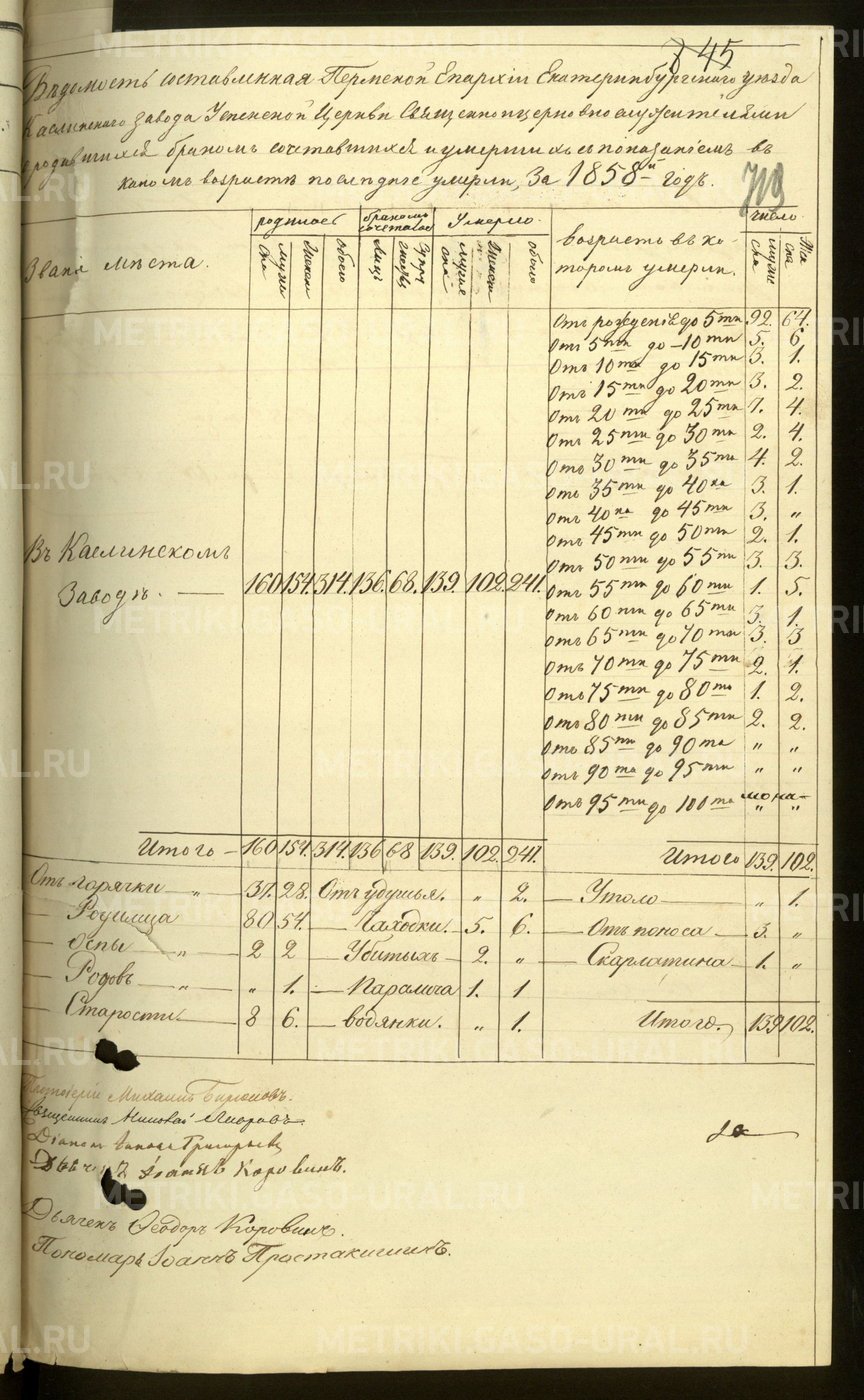 145
Вѣдомость составленная Пермской Епархіи Екатеринбургскаго уѣзда
Каслинскаго завода Успенской Церкви Священноцерковнослужителями
о родившихся бракомъ сочетавшихся и умершихъ съ показаніемъ въ
какомъ возрастѣ последніе умерли, За 1858й годъ.
713
Званіе мѣста.
родилось
бракомъ сочеталось
Умерло.
возрастъ въ ко-
торомъ умерли.
число
муж: ска
женска
обоего
Лицъ
супружествъ
мужеска
женска
обоего
мужеска
Же ска
Отъ рожденія до 5ти 92. 64.
Отъ 5ти до 10ти 5. 6
Отъ 10ти до 15ти 3. 1.
Отъ 15ти до 20ти 3. 2.
Отъ 20ти до 25ти 7. 4.
Отъ 25ти до 30ти 2. 4.
Отъ 30ти до 35ти 4. 2.
Отъ 35ти до 40ка 3. 1.
Отъ 40ка до 45ти 3. "
Отъ 45ти до 50ти 2. 1.
Отъ 50ти до 55ти 3. 3.
Отъ 55ти до 60ти 1. 5.
Отъ 60ти до 65ти 3. 1.
Отъ 65ти до 70ти 3. 3
Отъ 70ти до 75ти 2. 1.
Отъ 75ти до 80ти 1. 2.
Отъ 80ти до 85ти 2. 2.
Отъ 85ти до 90та " "
Отъ 90та до 95ти " "
Отъ 95ти до 100та " "
Въ Каслинскомъ
Заводѣ. — 160. 154. 314. 136. 68. 139. 102. 241.
Итого — 160 154. 314. 136 68 139. 102. 241. Итого 139. 102.
Отъ горячки — " — 37. 28. Отъ удушья. " 2. — Утоло — " 1.
— Родимца 80 54. — Чаходки. — 5. 6. — Отъ поноса — 3. "
— Оспы — " — 2 2 — Убитыхъ — 2. " — Скарлатина — 1. "
— Родовъ — " — " 1. — Паралича 1. 1
— Старости. — 8 6. — водянки. " 1. Итого. 139 102.
Протоіерей Михаилъ Бирюковъ.
Священникъ Николай
Діаконъ Григорьевъ
Іоаннъ Коровинъ.
Дьячекъ Ѳеодоръ Коровинъ.
Пономарь Іоаннъ Простакишинъ.
METRIKI.SASO-URAL.RU